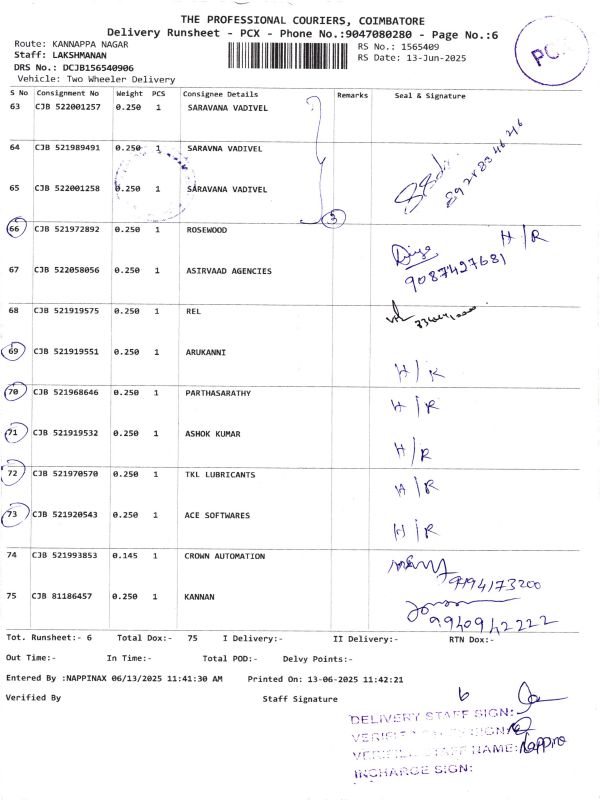 THE PROFESSIONAL COURIERS, COIMBATORE
Delivery Runsheet - PCX - Phone No.:9047080280 - Page No.:6
Route: KANNAPPA NAGAR
RS No.: 1565409
Staff: LAKSHMANAN
RS Date: 13-Jun-2025
DRS No.: DCJB156540906
Vehicle: Two Wheeler Delivery
PCX
S No Consignment No Weight PCS Consignee Details Remarks Seal & Signature
63 CJB 522001257 0.250 1 SARAVANA VADIVEL
64 CJB 521989491 0.250 1 SARAVNA VADIVEL
65 CJB 522001258 0.250 1 SARAVANA VADIVEL
3
66 CJB 521972892 0.250 1 ROSEWOOD H/R
67 CJB 522058056 0.250 1 ASIRVAAD AGENCIES
9087427681
68 CJB 521919575 0.250 1 REL
69 CJB 521919551 0.250 1 ARUKANNI H/R
70 CJB 521968646 0.250 1 PARTHASARATHY H/R
71 CJB 521919532 0.250 1 ASHOK KUMAR H/R
72 CJB 521970570 0.250 1 TKL LUBRICANTS H/R
73 CJB 521920543 0.250 1 ACE SOFTWARES H/R
74 CJB 521993853 0.145 1 CROWN AUTOMATION
9194173200
75 CJB 81186457 0.250 1 KANNAN
9940942222
Tot. Runsheet:- 6 Total Dox:- 75 I Delivery:- II Delivery:- RTN Dox:-
Out Time:- In Time:- Total POD:- Delvy Points:-
Entered By :NAPPINAX 06/13/2025 11:41:30 AM Printed On: 13-06-2025 11:42:21
Verified By Staff Signature
6
DELIVERY STAFF SIGN:
VERIFIED STAFF SIGN:
VERIFIED STAFF NAME:
INCHARGE SIGN: